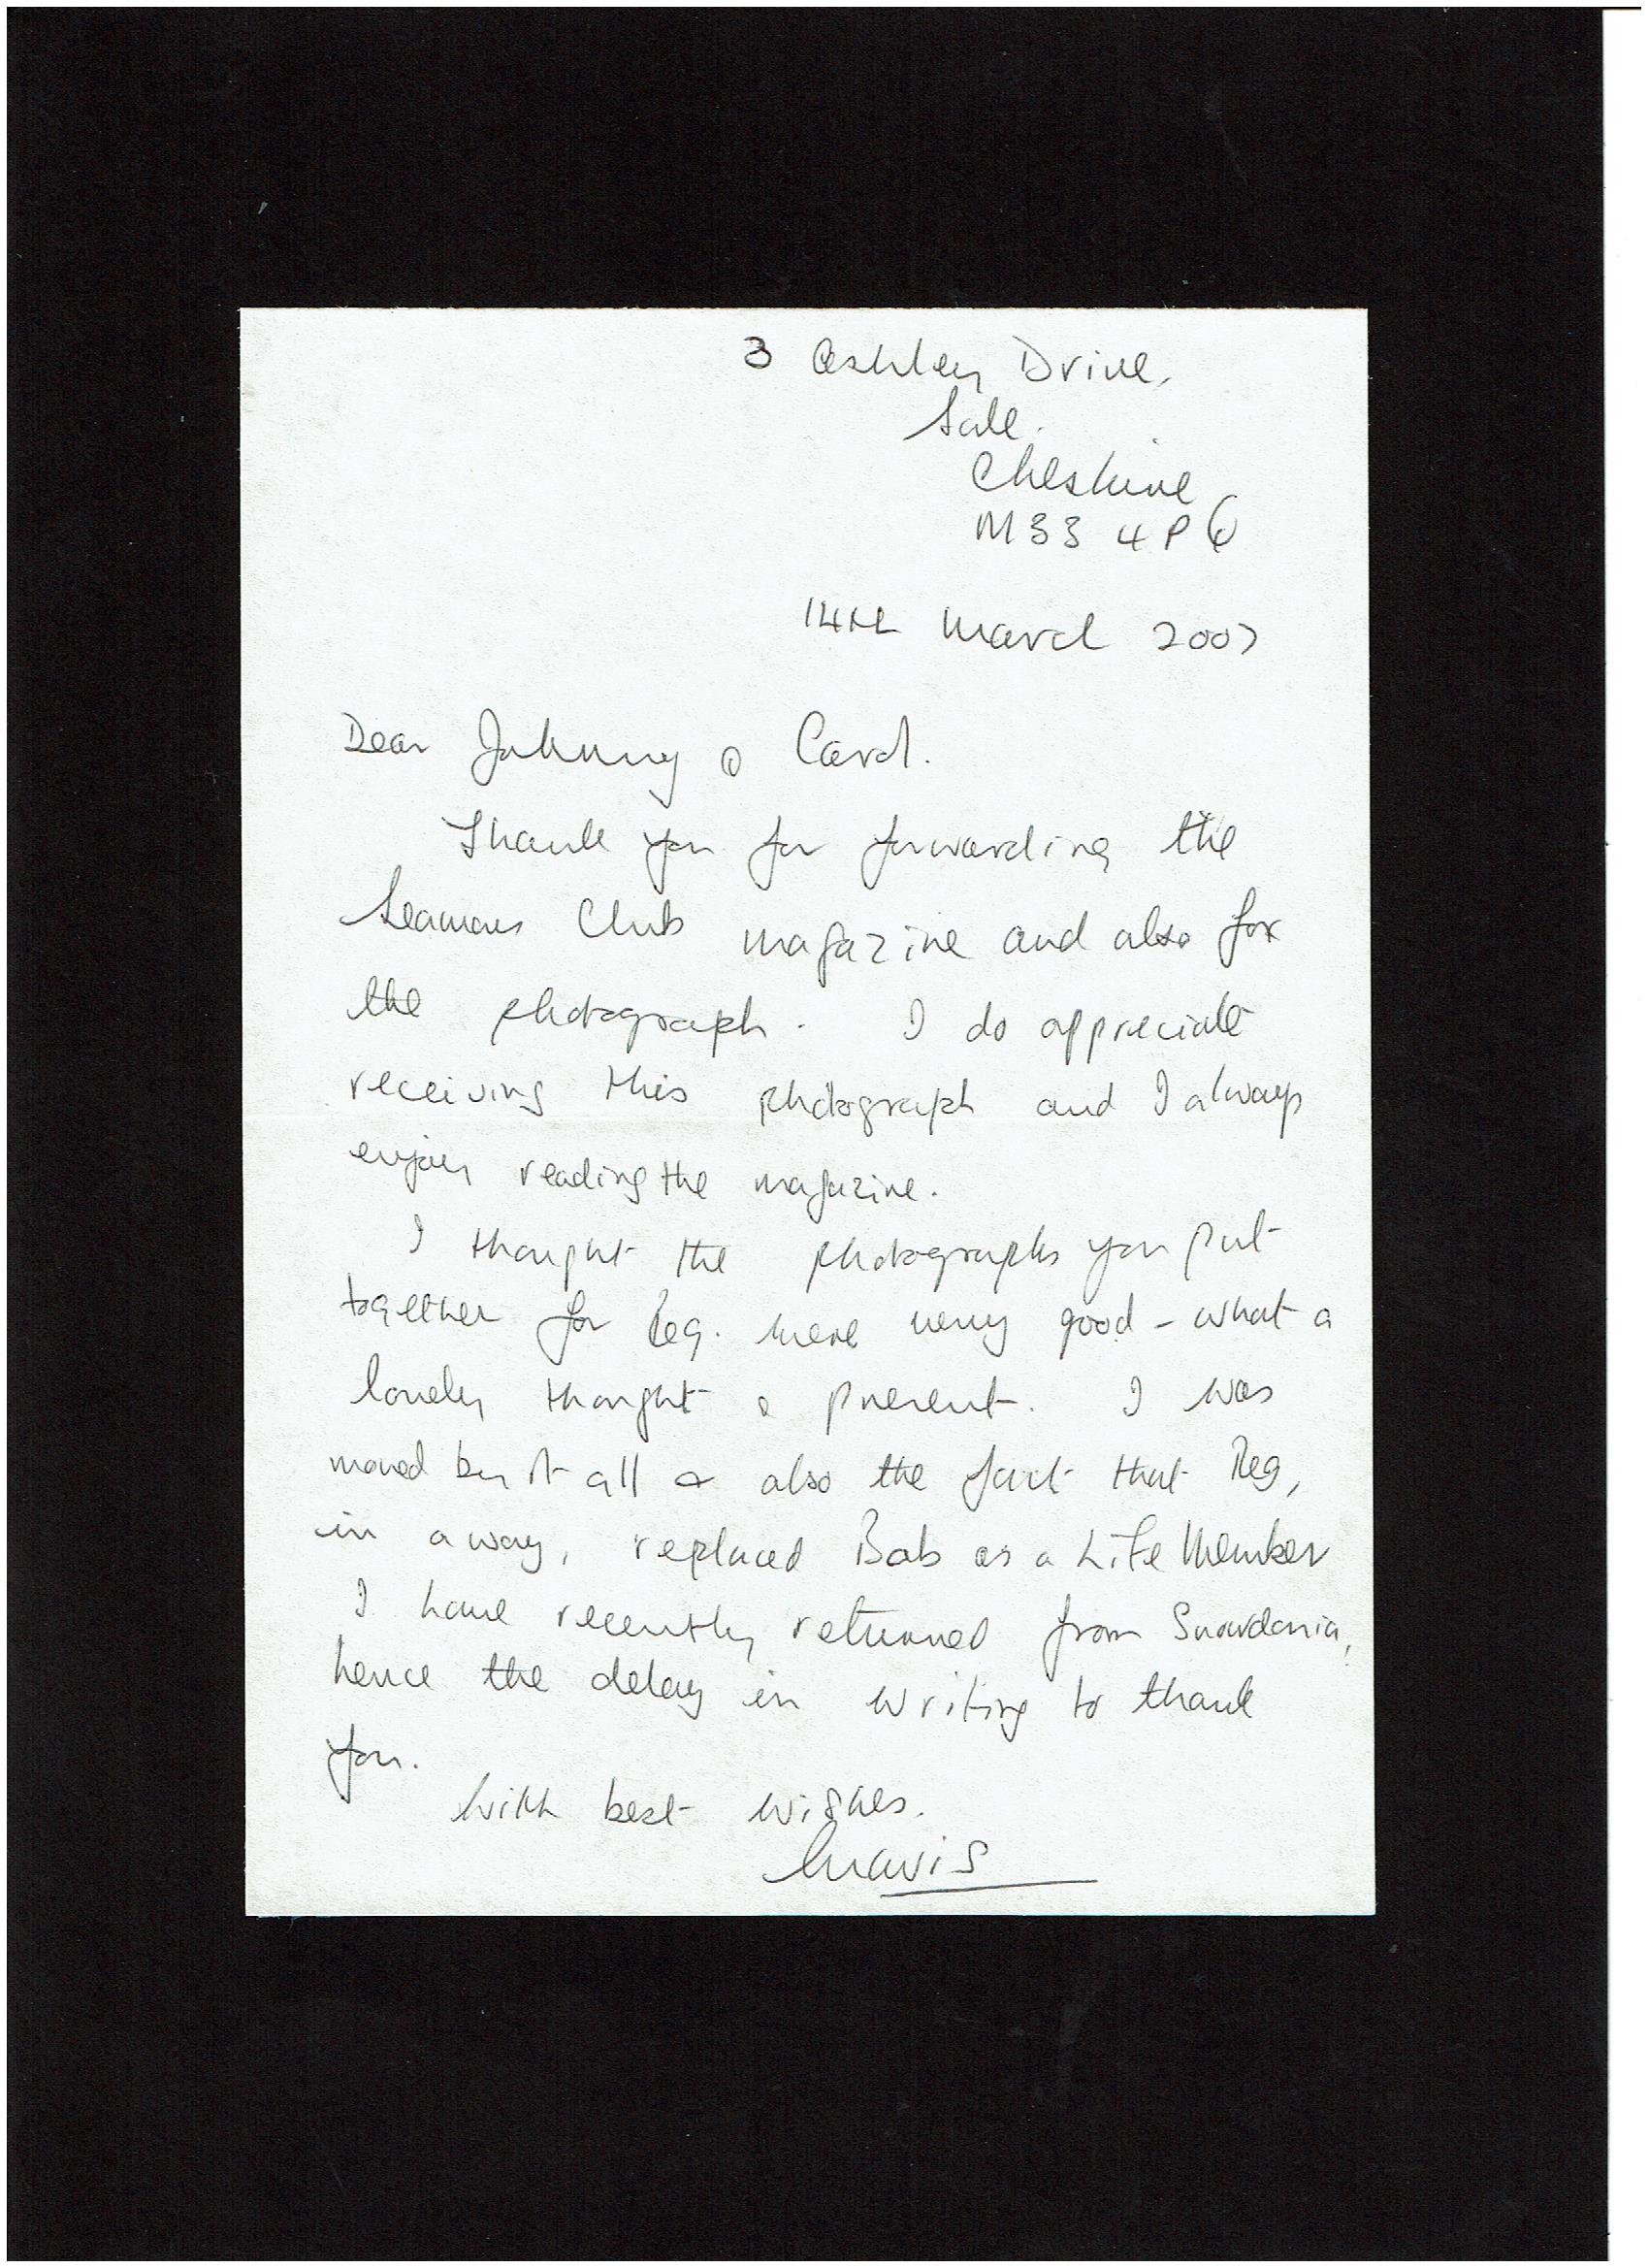 3 Ashley Drive,
Sale.
Cheshire
M33 4PQ
14th March 2007
Dear Johnny & Carol.
Thank you for forwarding the
Seamans Club magazine and also for
the photograph. I do appreciate
receiving this photograph and I always
enjoy reading the magazine.
I thought the photographs you put
together for Reg. were very good - what a
lovely thought & present. I was
moved by it all & also the fact that Reg,
in a way, replaced Bob as a Life Member
I have recently returned from Snowdonia,
hence the delay in writing to thank
you.
With best wishes.
Mavis